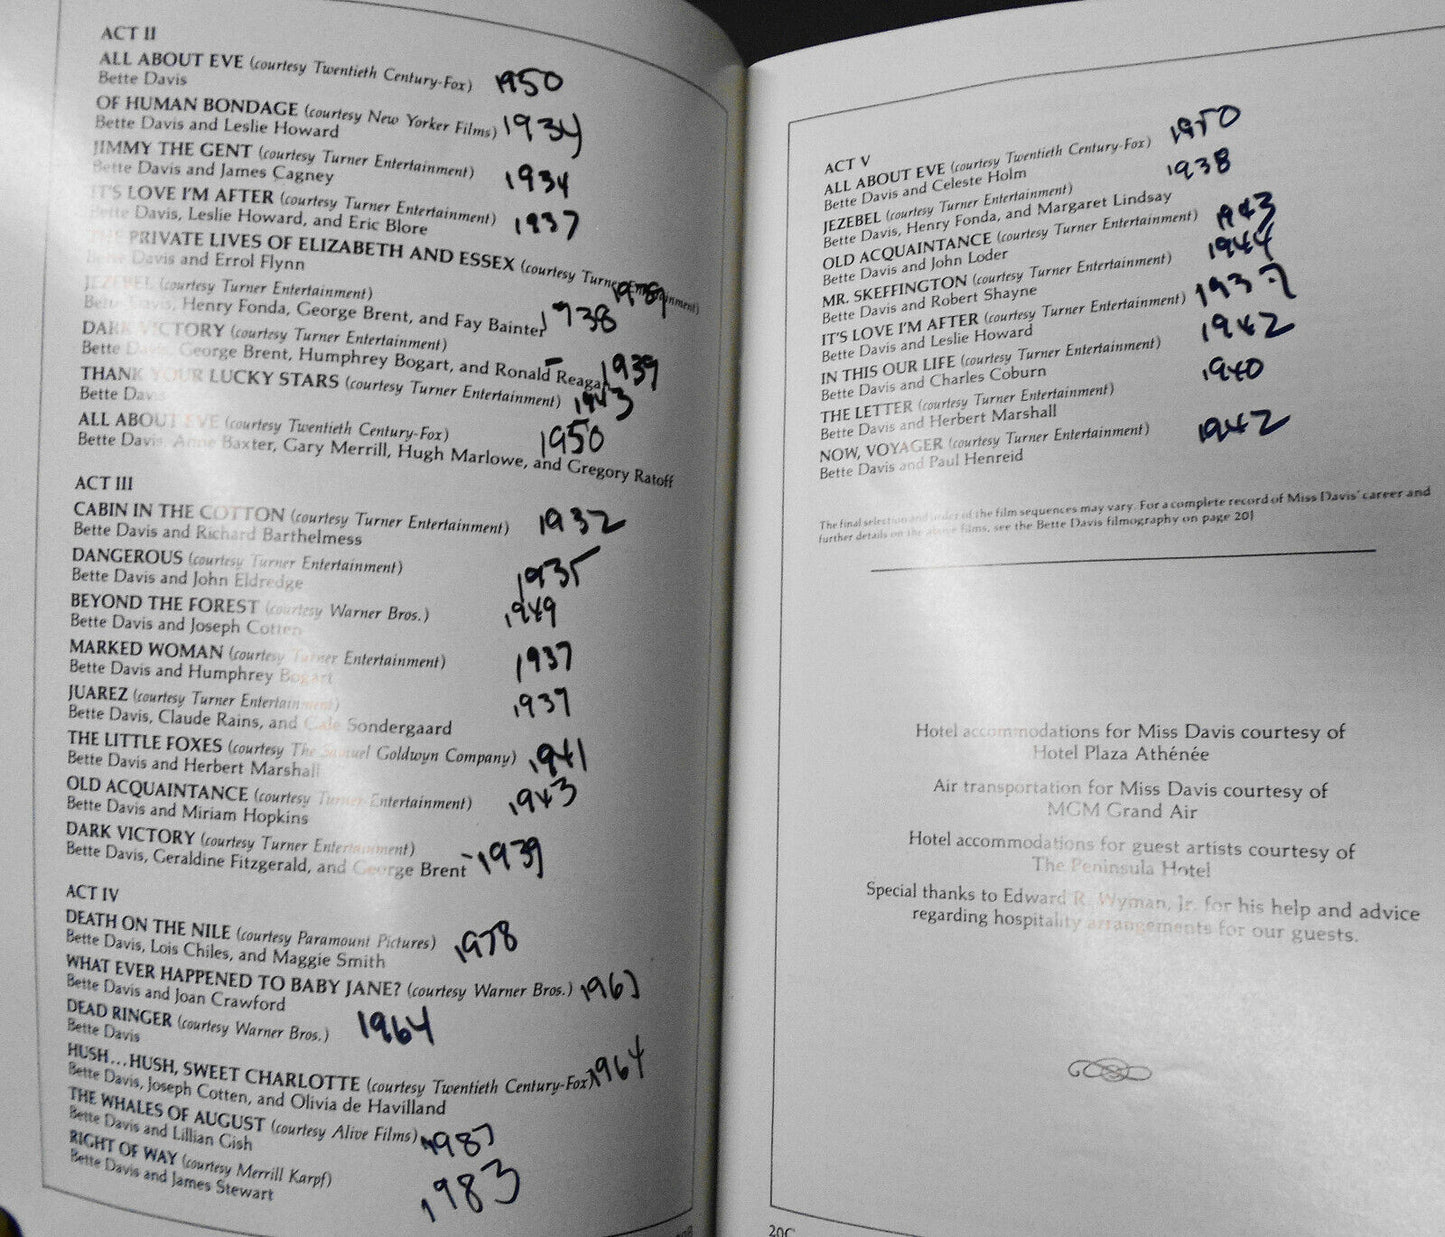 ACT II
ALL ABOUT EVE (courtesy Twentieth Century-Fox) 1950
Bette Davis
OF HUMAN BONDAGE (courtesy New Yorker Films) 1934
Bette Davis and Leslie Howard
JIMMY THE GENT (courtesy Turner Entertainment) 1934
Bette Davis and James Cagney
IT'S LOVE I'M AFTER (courtesy Turner Entertainment) 1937
Bette Davis, Leslie Howard, and Eric Blore
THE PRIVATE LIVES OF ELIZABETH AND ESSEX (courtesy Turner Entertainment) 1939
Bette Davis and Errol Flynn
JEZEBEL (courtesy Turner Entertainment)
Bette Davis, Henry Fonda, George Brent, and Fay Bainter 1938
DARK VICTORY (courtesy Turner Entertainment)
Bette Davis, George Brent, Humphrey Bogart, and Ronald Reagan 1939
THANK YOUR LUCKY STARS (courtesy Turner Entertainment) 1943
Bette Davis
ALL ABOUT EVE (courtesy Twentieth Century-Fox) 1950
Bette Davis, Anne Baxter, Gary Merrill, Hugh Marlowe, and Gregory Ratoff
ACT III
CABIN IN THE COTTON (courtesy Turner Entertainment) 1932
Bette Davis and Richard Barthelmess
DANGEROUS (courtesy Turner Entertainment) 1935
Bette Davis and John Eldredge
BEYOND THE FOREST (courtesy Warner Bros.) 1949
Bette Davis and Joseph Cotten
MARKED WOMAN (courtesy Turner Entertainment) 1937
Bette Davis and Humphrey Bogart
JUAREZ (courtesy Turner Entertainment) 1937
Bette Davis, Claude Rains, and Gale Sondergaard
THE LITTLE FOXES (courtesy The Samuel Goldwyn Company) 1941
Bette Davis and Herbert Marshall
OLD ACQUAINTANCE (courtesy Turner Entertainment) 1943
Bette Davis and Miriam Hopkins
DARK VICTORY (courtesy Turner Entertainment)
Bette Davis, Geraldine Fitzgerald, and George Brent 1939
ACT IV
DEATH ON THE NILE (courtesy Paramount Pictures) 1978
Bette Davis, Lois Chiles, and Maggie Smith
WHAT EVER HAPPENED TO BABY JANE? (courtesy Warner Bros.)
Bette Davis and Joan Crawford
DEAD RINGER (courtesy Warner Bros.) 1964
Bette Davis
HUSH...HUSH, SWEET CHARLOTTE (courtesy Twentieth Century-Fox) 1964
Bette Davis, Joseph Cotten, and Olivia de Havilland
THE WHALES OF AUGUST (courtesy Alive Films) 1987
Bette Davis and Lillian Gish
RIGHT OF WAY (courtesy Merrill Karpf) 1983
Bette Davis and James Stewart
ACT V
ALL ABOUT EVE (courtesy Twentieth Century-Fox) 1950
Bette Davis and Celeste Holm
JEZEBEL (courtesy Turner Entertainment) 1938
Bette Davis, Henry Fonda, and Margaret Lindsay
OLD ACQUAINTANCE (courtesy Turner Entertainment) 1943
Bette Davis and John Loder
MR. SKEFFINGTON (courtesy Turner Entertainment) 1944
Bette Davis and Robert Shayne
IT'S LOVE I'M AFTER (courtesy Turner Entertainment) 1937
Bette Davis and Leslie Howard
IN THIS OUR LIFE (courtesy Turner Entertainment) 1942
Bette Davis and Charles Coburn
THE LETTER (courtesy Turner Entertainment) 1940
Bette Davis and Herbert Marshall
NOW, VOYAGER (courtesy Turner Entertainment) 1942
Bette Davis and Paul Henreid
The final selection and order of the film sequences may vary. For a complete record of Miss Davis' career and
further details on the above films, see the Bette Davis filmography on page 20J
Hotel accommodations for Miss Davis courtesy of
Hotel Plaza Athénée
Air transportation for Miss Davis courtesy of
MGM Grand Air
Hotel accommodations for guest artists courtesy of
The Peninsula Hotel
Special thanks to Edward R. Wyman, Jr. for his help and advice
regarding hospitality arrangements for our guests.
20C